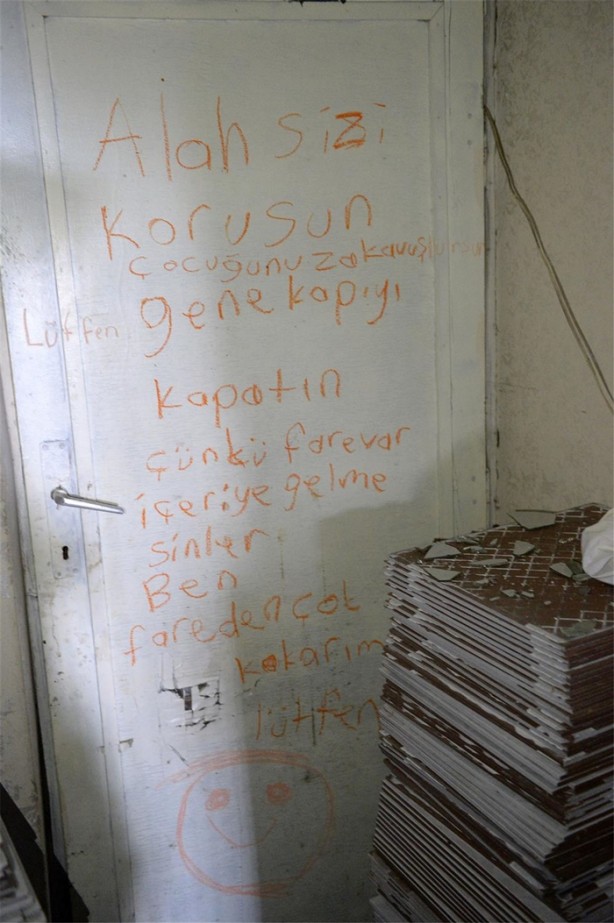 Alah sizi
korusun
çocuğunuza kavuştursun
gene kapıyı
Lütfen
kapatın
çünkü fare var
içeriye gelme
sinler
Ben
fareden çok
kokarım
lütfen